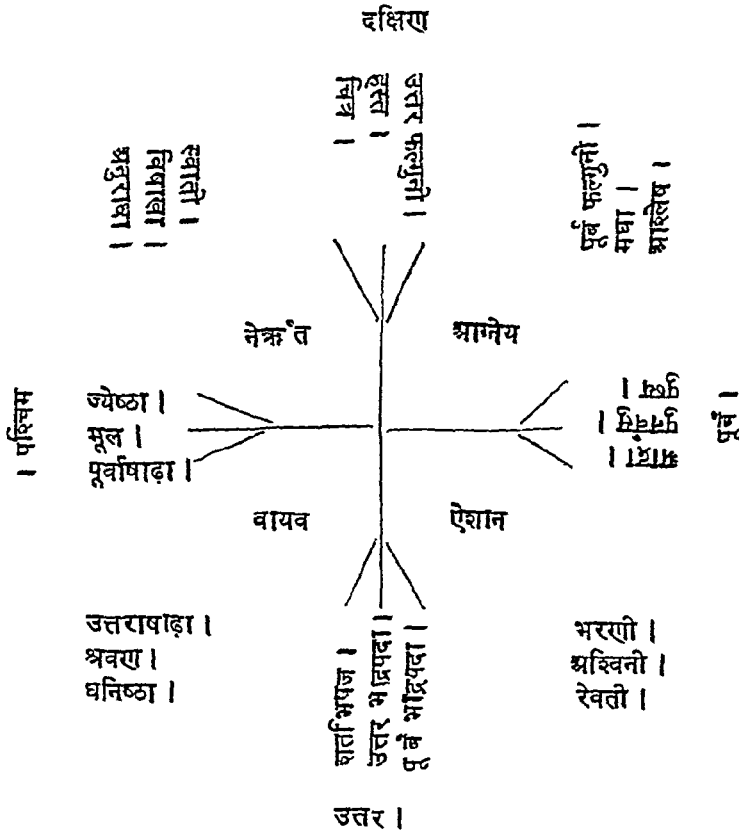 दक्षिण
उत्तर फल्गुनी।
हस्त।
चित्र।
स्वाती।
विषाखा।
अनुराधा।
पूर्व फल्गुनी।
मघा।
आश्लेष।
नेऋंत
आग्नेय
। पश्चिम
ज्येष्ठा।
मूल।
पूर्वाषाढ़ा।
पुष्य।
पुनर्वसु।
आर्द्रा।
पूर्व।
वायव
ऐशान
उत्तराषाढ़ा।
श्रवण।
धनिष्ठा।
शतभिषज।
उत्तर भाद्रपदा।
पूर्व भाद्रपदा।
भरणी।
अश्विनी।
रेवती।
उत्तर।